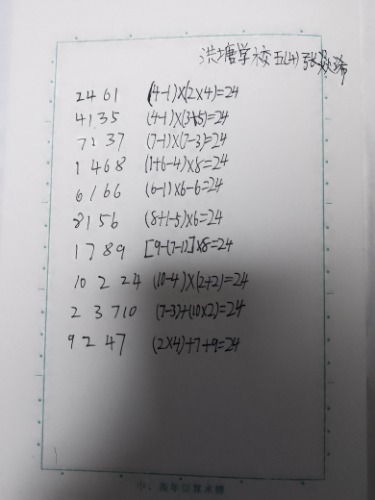 洪塘学校五(4) 张
2461 (4-1)×(2×4)=24
4135 (4-1)×(3+5)=24
7137 (7-1)×(7-3)=24
1468 (1+6-4)×8=24
6166 (6-1)×6-6=24
8156 (8+1-5)×6=24
1789 [9-(7-1)]×8=24
10 2 2 4 (10-4)×(2+2)=24
2 3 7 10 (7-3)+(10×2)=24
9 2 4 7 (2×4)+7+9=24